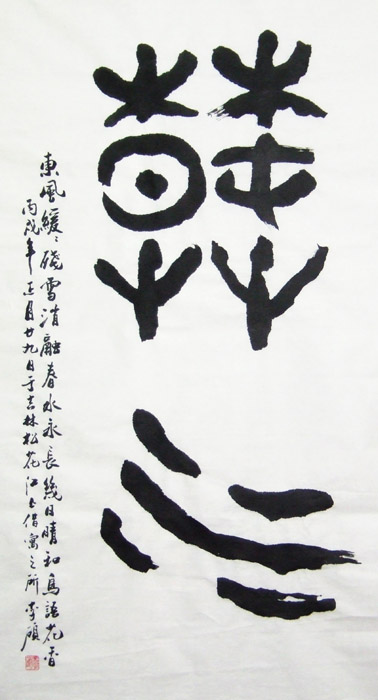 春水
東風緩〻殘雪消融春水永長幾日晴和鳥語花香
丙戌年正月廿九日于吉林松花江上借寓之所李